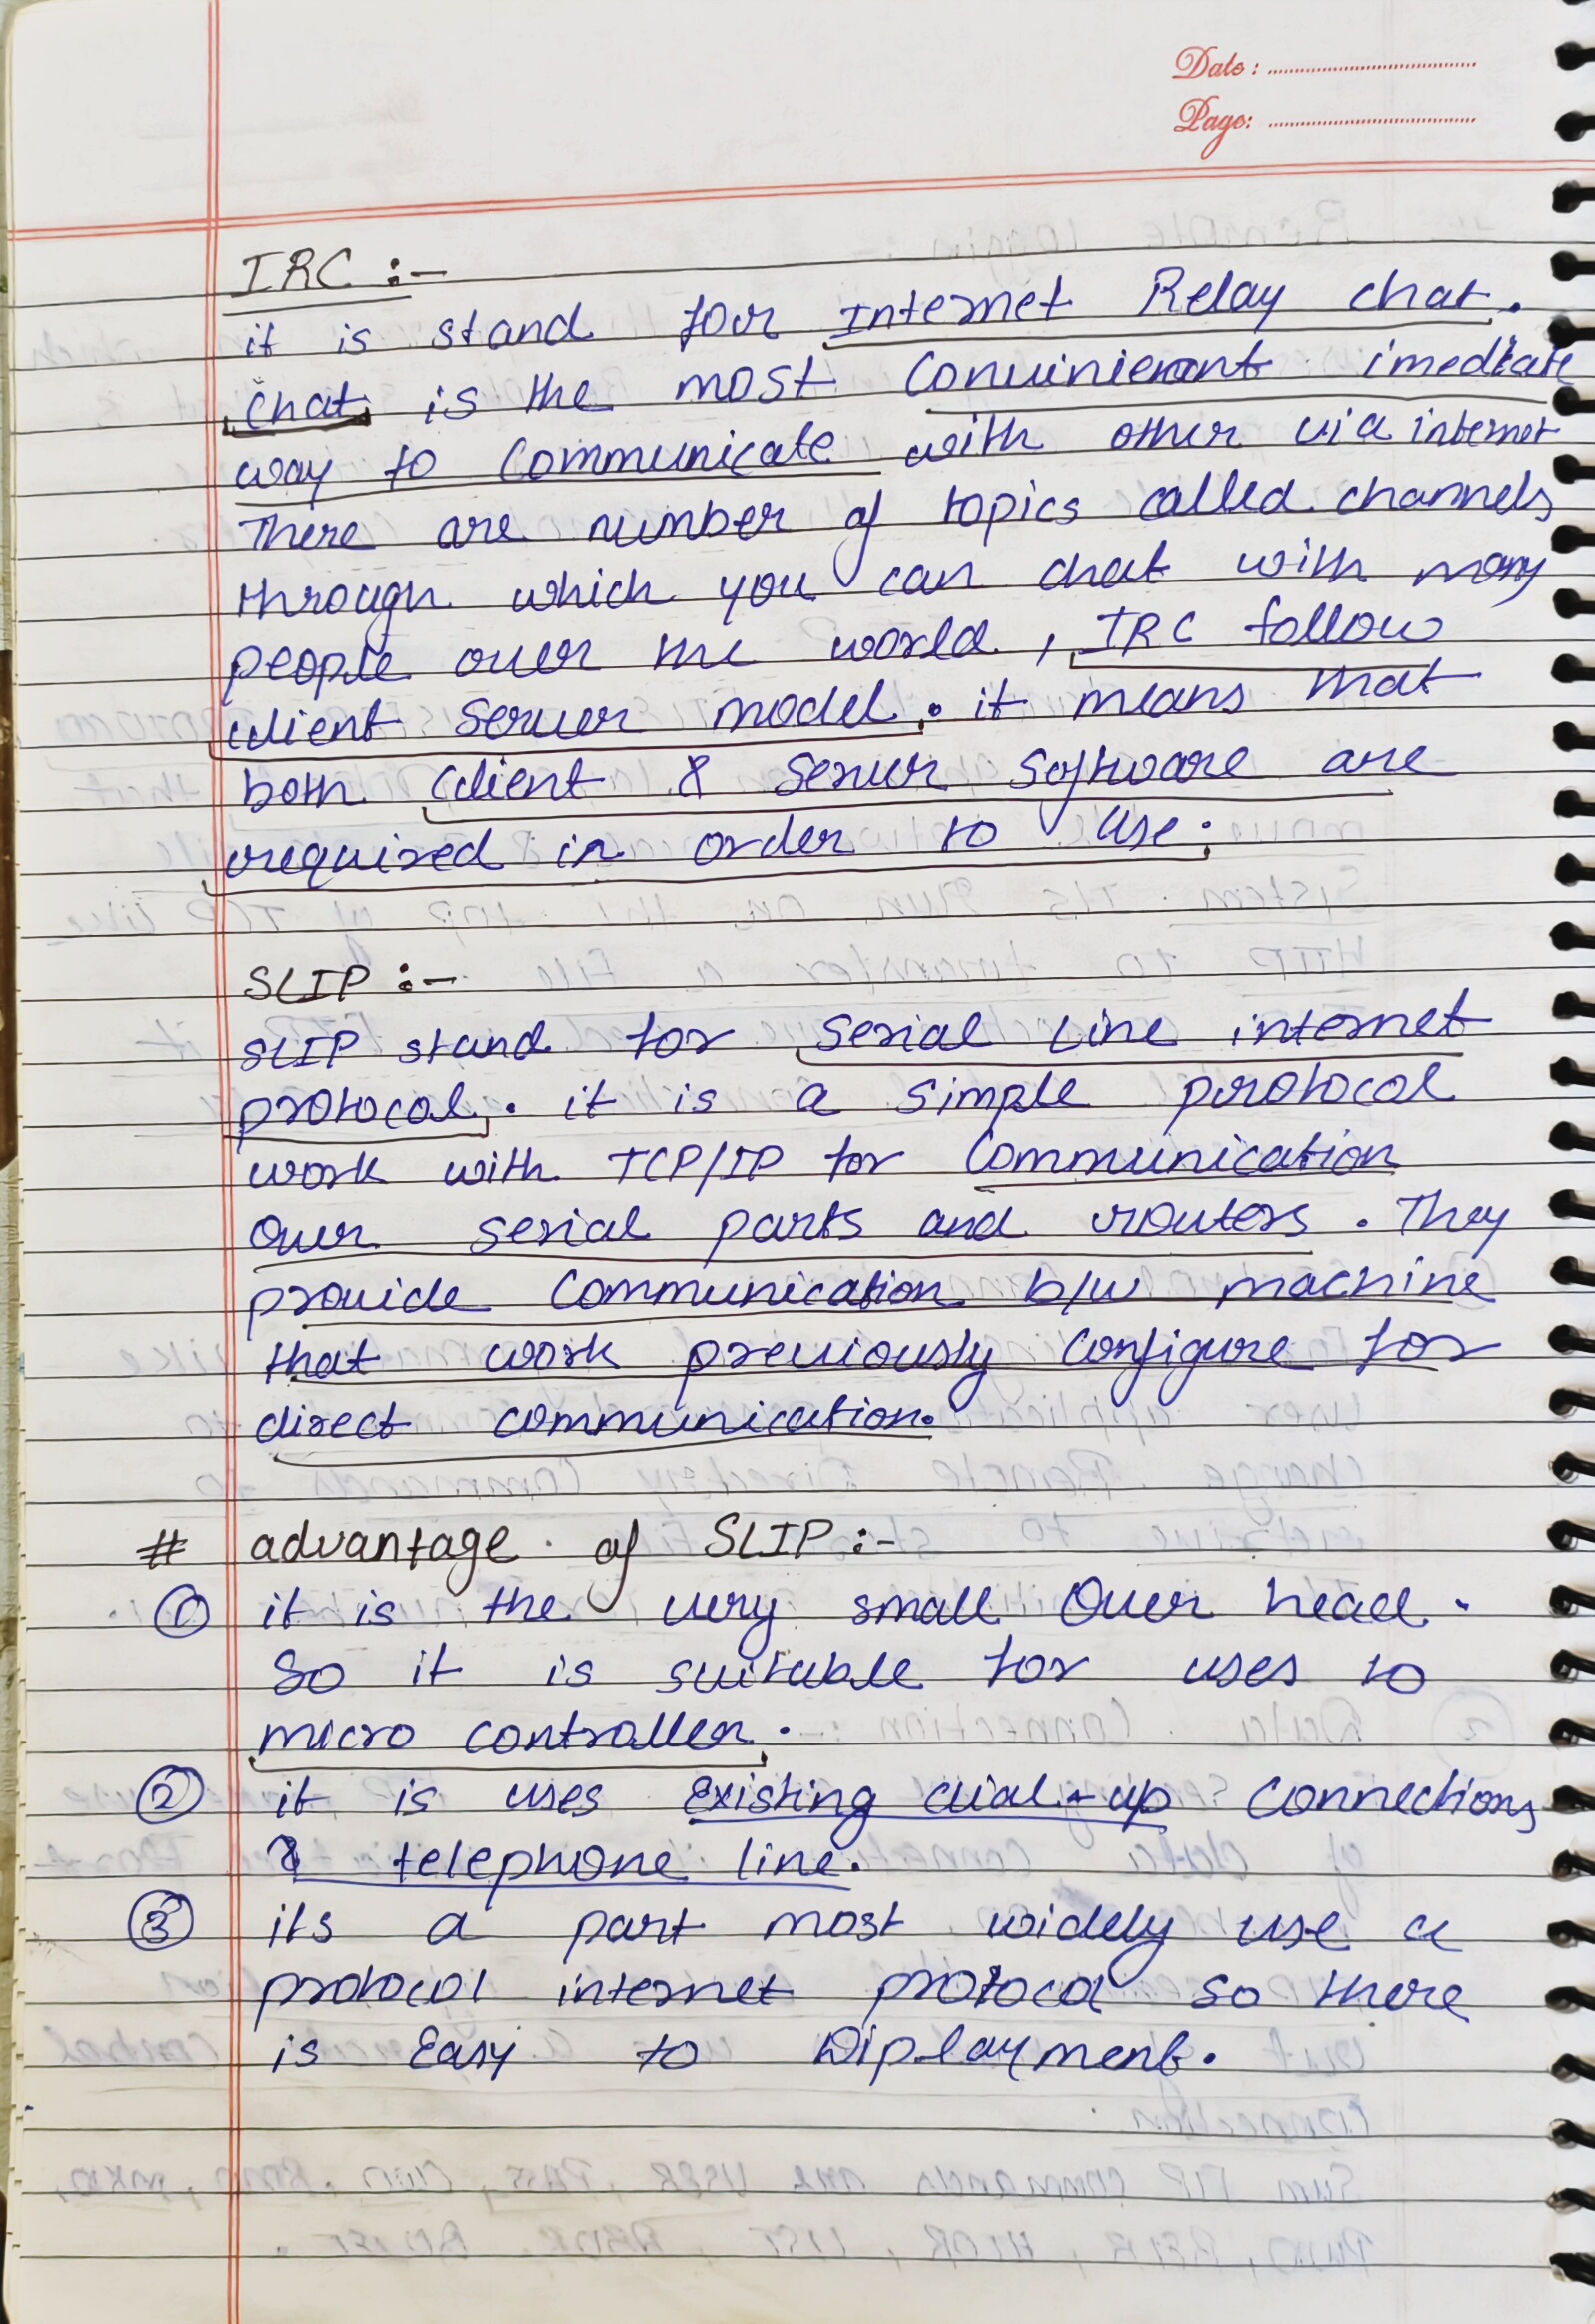 Date :
Page:
IRC :-
it is stand for Internet Relay chat.
chat is the most Convinienent imediate
way to Communicate with other via internet
There are number of topics called channels
through which you can chat with many
people over the world , IRC follow
client server model. it means that
both client & server software are
required in order to use.
SLIP :-
SLIP stand for Serial Line internet
protocol. it is a simple protocol
work with TCP/IP for Communication
over serial parts and routers . They
provide Communication b/w machine
that work previously configure for
direct communication.
# advantage of SLIP :-
① it is the very small Over head .
So it is suitable for uses to
micro controller .
② it is uses Existing dial-up Connections
& telephone line.
③ its a part most widely use a
protocol internet protocol so there
is Easy to Diployment.